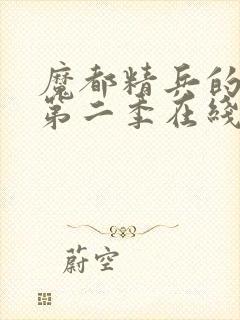 魔都精兵的
第二季在线
蔚空